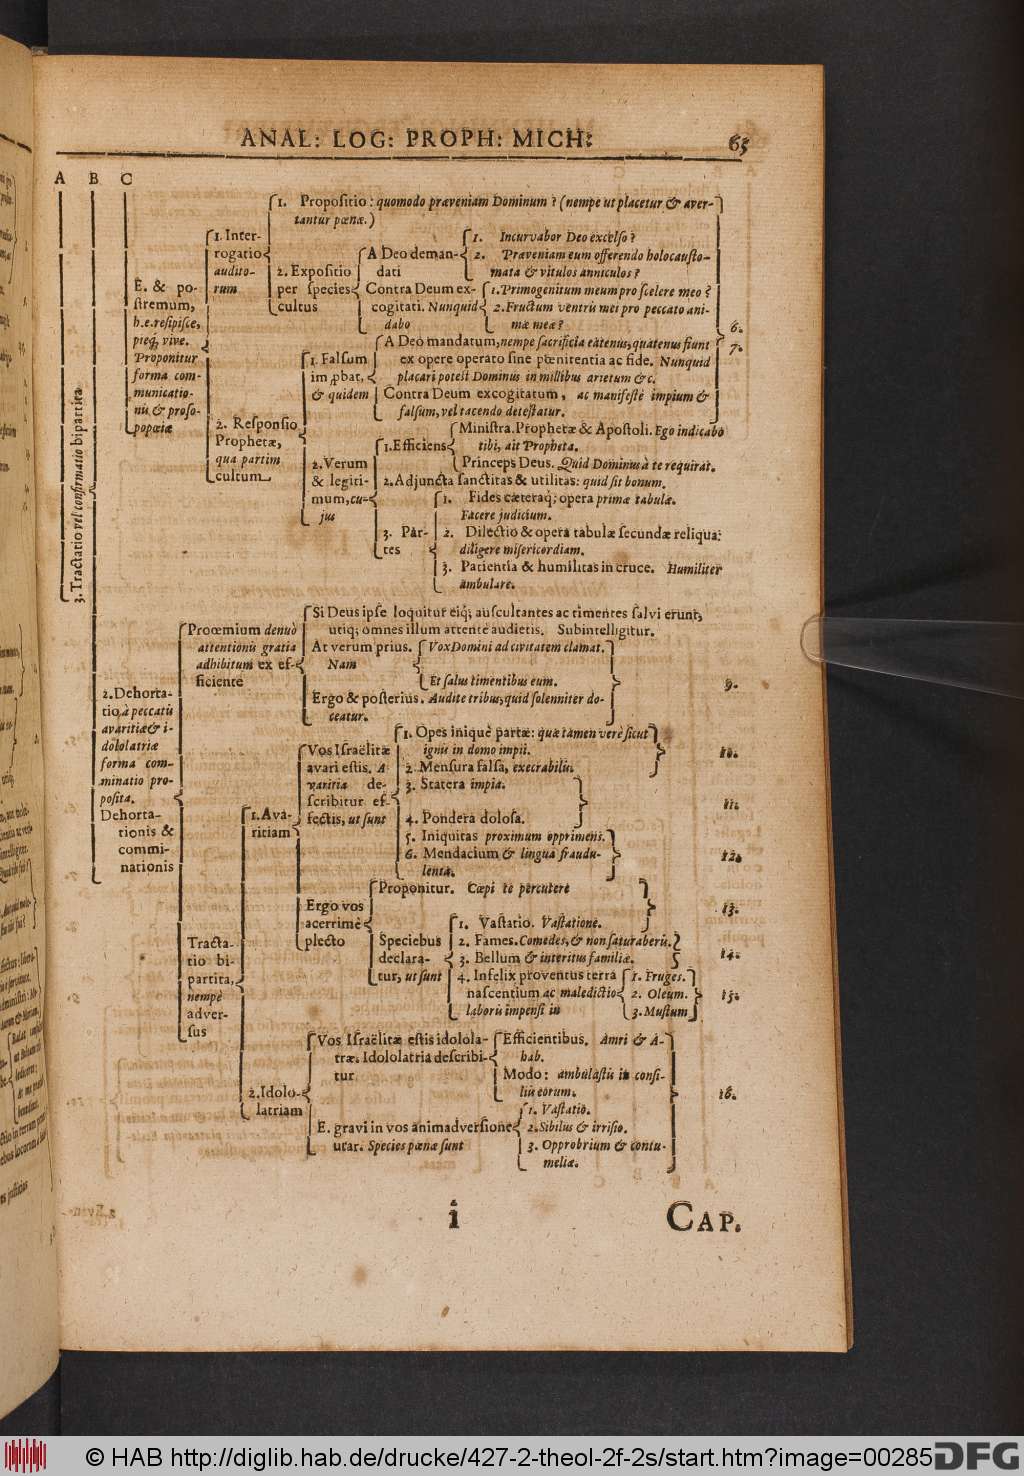 ANAL: LOG: PROPH: MICH:
65
A B C
3. Tractatio vel confirmatio bipartita
E. & po-
stremum,
h.e. resipisce,
pieq́; vive.
Proponitur
forma com-
municatio-
nis & proso-
popœiæ
1. Inter-
rogatio
audito-
rum
1. Propositio: quomodo præveniam Dominum? (nempe ut placetur & aver-
tantur pœnæ.)
2. Expositio
per species
cultus
A Deo deman-
dati
1. Incurvabor Deo excelso?
2. Præveniam eum offerendo holocausto-
mata & vitulos anniculos?
Contra Deum ex-
cogitati. Nunquid
dabo
1. Primogenitum meum pro scelere meo?
2. Fructum ventris mei pro peccato ani-
mæ meæ?
6.
2. Responsio
Prophetæ,
qua partim
cultum
1. Falsum
improbat,
& quidem
A Deo mandatum, nempe sacrificia eatenus, quatenus fiunt
ex opere operato sine pœnitentia ac fide. Nunquid
placari potest Dominus in millibus arietum &c.
Contra Deum excogitatum, ac manifestè impium &
falsum, vel tacendo detestatur.
7.
2. Verum
& legiti-
mum, cu-
jus
1. Efficiens
Ministra. Prophetæ & Apostoli. Ego indicabo
tibi, ait Propheta.
Princeps Deus. Quid Dominus à te requirat.
2. Adjuncta sanctitas & utilitas: quid sit bonum.
3. Par-
tes
1. Fides cæteraq́; opera primæ tabulæ.
Facere judicium.
2. Dilectio & opera tabulæ secundæ reliqua:
diligere misericordiam.
3. Patientia & humilitas in cruce. Humiliter
ambulare.
2. Dehorta-
tio à peccatis
avaritiæ & i-
dololatriæ
forma com-
minatio pro-
posita.
Dehorta-
tionis &
commi-
nationis
Proœmium denuò
attentionis gratia
adhibitum ex ef-
ficiente
Si Deus ipse loquitur eiq́; auscultantes ac timentes salvi erunt,
utiq; omnes illum attentè audietis. Subintelligitur.
At verum prius.
Nam
Vox Domini ad civitatem clamat.
Et salus timentibus eum.
Ergo & posterius. Audite tribus, quid solenniter do-
ceatur.
9.
Tracta-
tio bi-
partita,
nempè
adver-
sus
1. Ava-
ritiam
Vos Israëlitæ
avari estis. A
varitia de-
scribitur ef-
fectis, ut sunt
1. Opes iniquè partæ: quæ tamen verè sicut
ignis in domo impii.
10.
2. Mensura falsa, execrabilis.
3. Statera impia.
4. Pondera dolosa.
11.
5. Iniquitas proximum opprimens.
6. Mendacium & lingua fraudu-
lenta.
12.
Ergo vos
acerrimè
plecto
Proponitur. Cœpi te percutere
13.
Speciebus
declara-
tur, ut sunt
1. Vastatio. Vastatione.
2. Fames. Comedes, & non saturaberis.
3. Bellum & interitus familiæ.
14.
4. Infelix proventus terra
nascentium ac maledictio
laboris impensi in
1. Fruges.
2. Oleum.
3. Mustum
15.
2. Idolo-
latriam
Vos Israëlitæ estis idolola-
træ. Idololatria describi-
tur
Efficientibus. Amri & A-
hab.
Modo: ambulastis in consi-
liis eorum.
E. gravi in vos animadversione
utar. Species pœnæ sunt
1. Vastatio.
2. Sibilus & irrisio.
3. Opprobrium & contu-
meliæ.
16.
i
CAP.
© HAB http://diglib.hab.de/drucke/427-2-theol-2f-2s/start.htm?image=00285
DFG